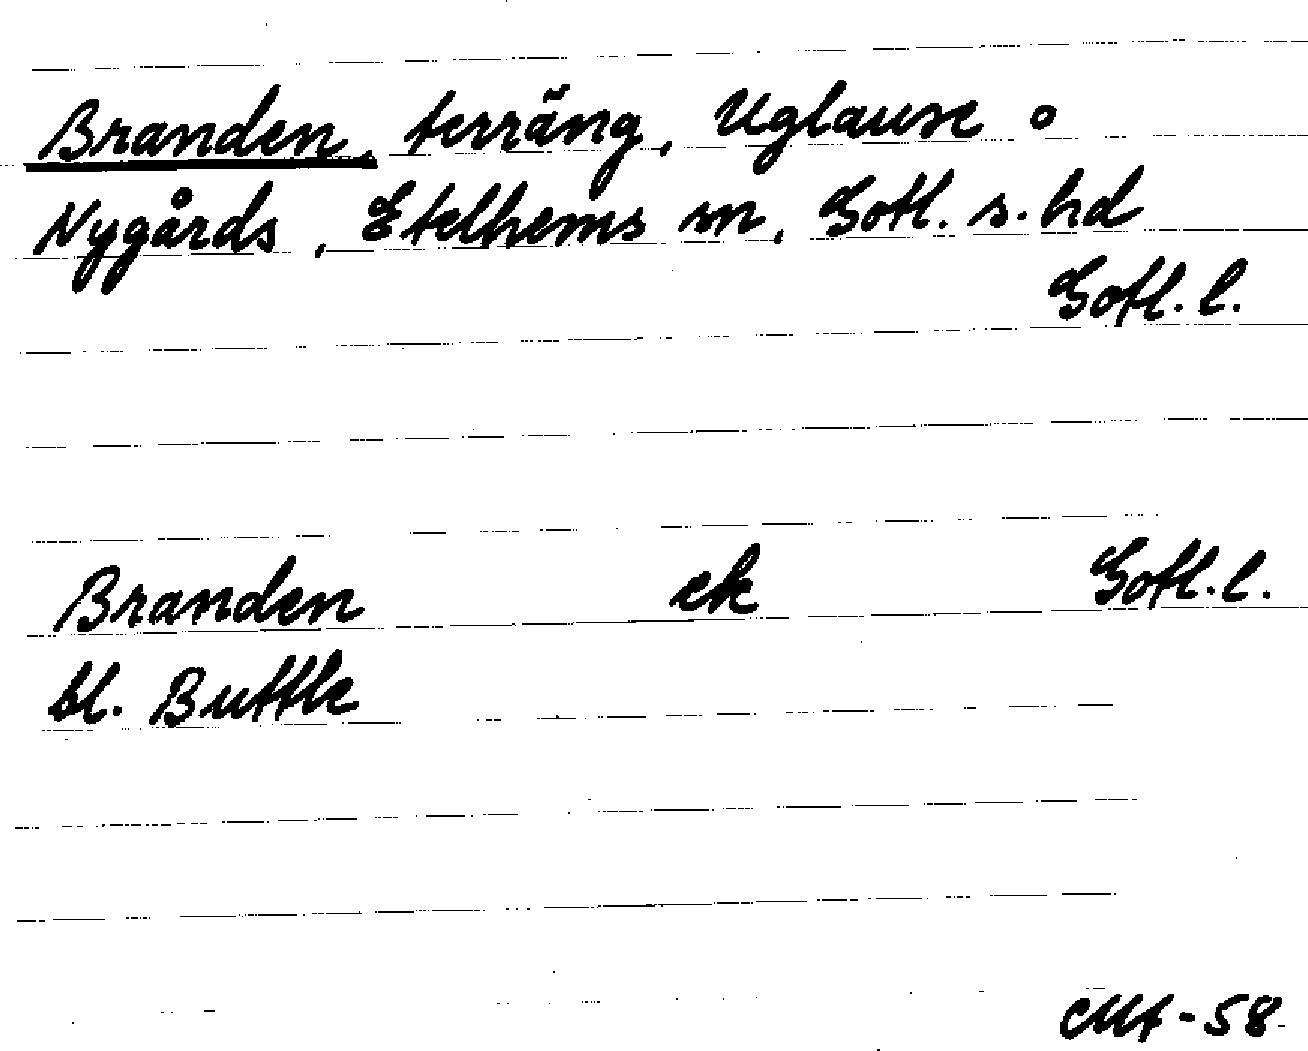 Branden, terräng, Uglause o
Nygårds, Etelhems sn, Gotl. s. hd
Gotl. l.
Branden ek Gotl. l.
bl. Buttle
CMt-58